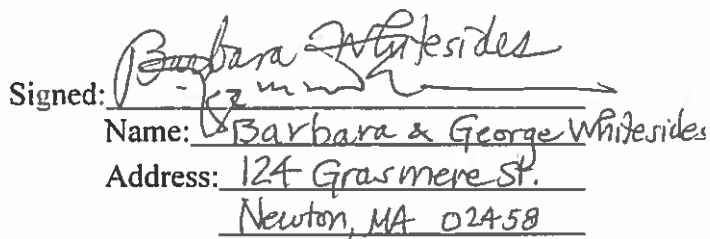 Barbara Whitesides
Signed:
Name: Barbara & George Whitesides
Address: 124 Grasmere St.
Newton, MA 02458